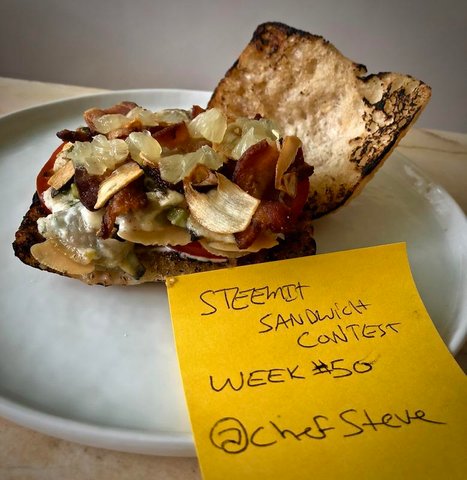 STEEMIT
SANDWICH
CONTEST
WEEK #50
@chef Steve